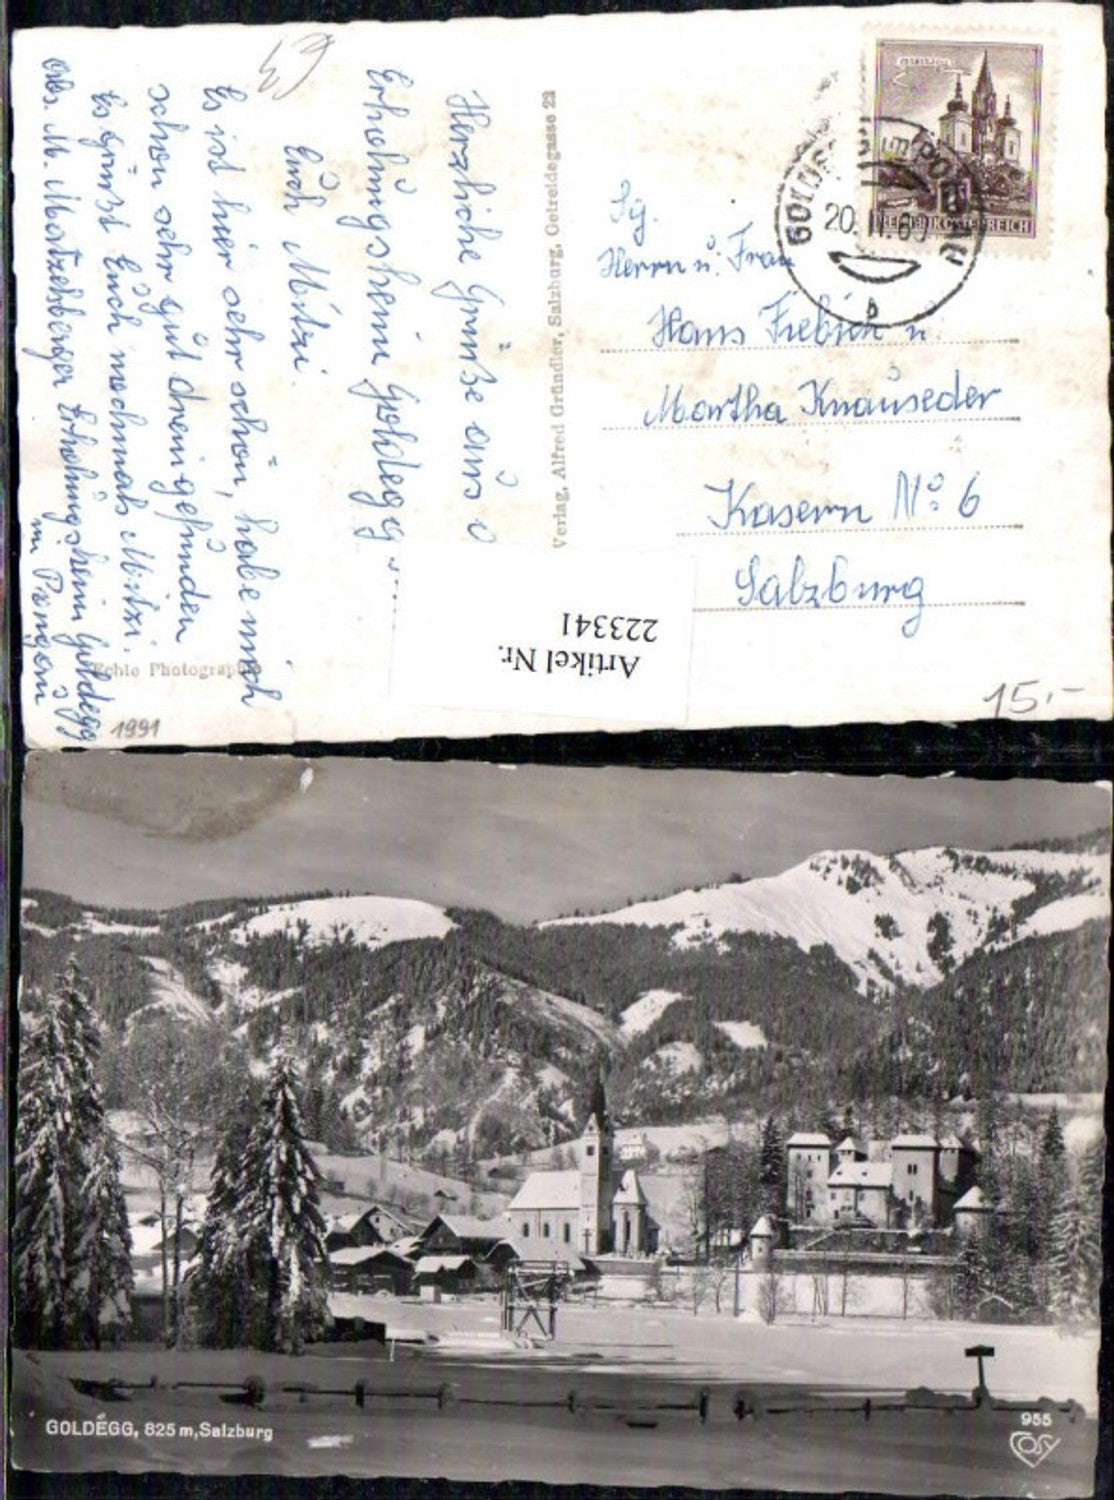 Herzliche Grüße aus
Erholungsheim Goldegg
Euch Mitzi.
Es ist hier sehr schön, habe mich
schon sehr gut dreingefunden
Es grüßt Euch nochmals Mitzi.
Abs. M. Matzelsberger Erholungsheim Goldegg
im Pongau
Echte Photographie
1991
Verlag, Alfred Gründler, Salzburg, Getreidegasse 22
REPUBLIK ÖSTERREICH
GOLDEGG IM PONGAU
20.11.60
b
Sg.
Herrn u. Frau
Hans Fiebich u.
Martha Knauseder
Kasern No. 6
Salzburg
Artikel Nr.
223341
15.-
GOLDEGG, 825 m, Salzburg
955
COSY